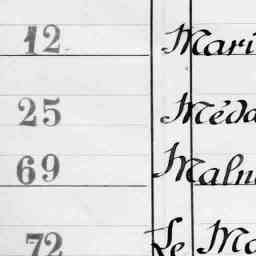 12 Mari
25 Méda
69 Maln
72 Le Mo